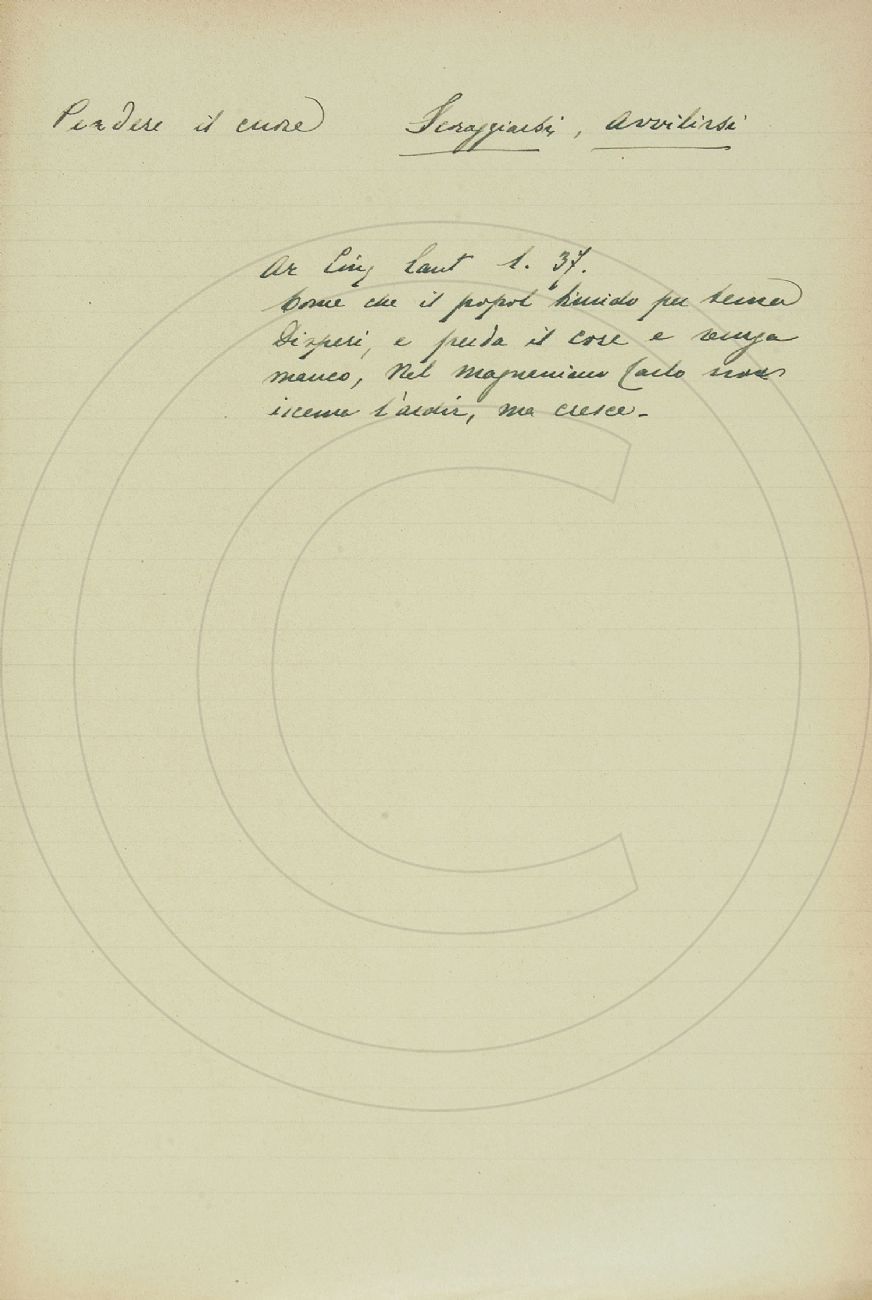 Perdere il cuore Scoraggiarsi, Avvilirsi
Ar Cinq Cant 2. 37.
Come che il popol timido per tema
Disperi, e perda il core e venga
manco, Nel magnanimo Carlo non
iscema l'ardir, ma cresce.